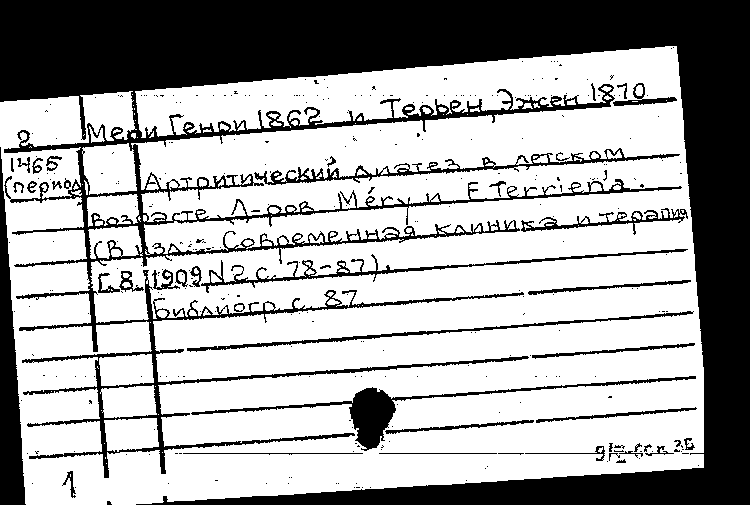 2 Мери, Генри 1862 и Терьен, Эжен 1870
1465
(период) Артритический диатез в детском
возрасте. Д-ров Méry и F Terrien'a.
(В изл.: Современная клиника и терапия
Г. 8. 1909, N 2, с. 78-87).
Библиогр с. 87.
1